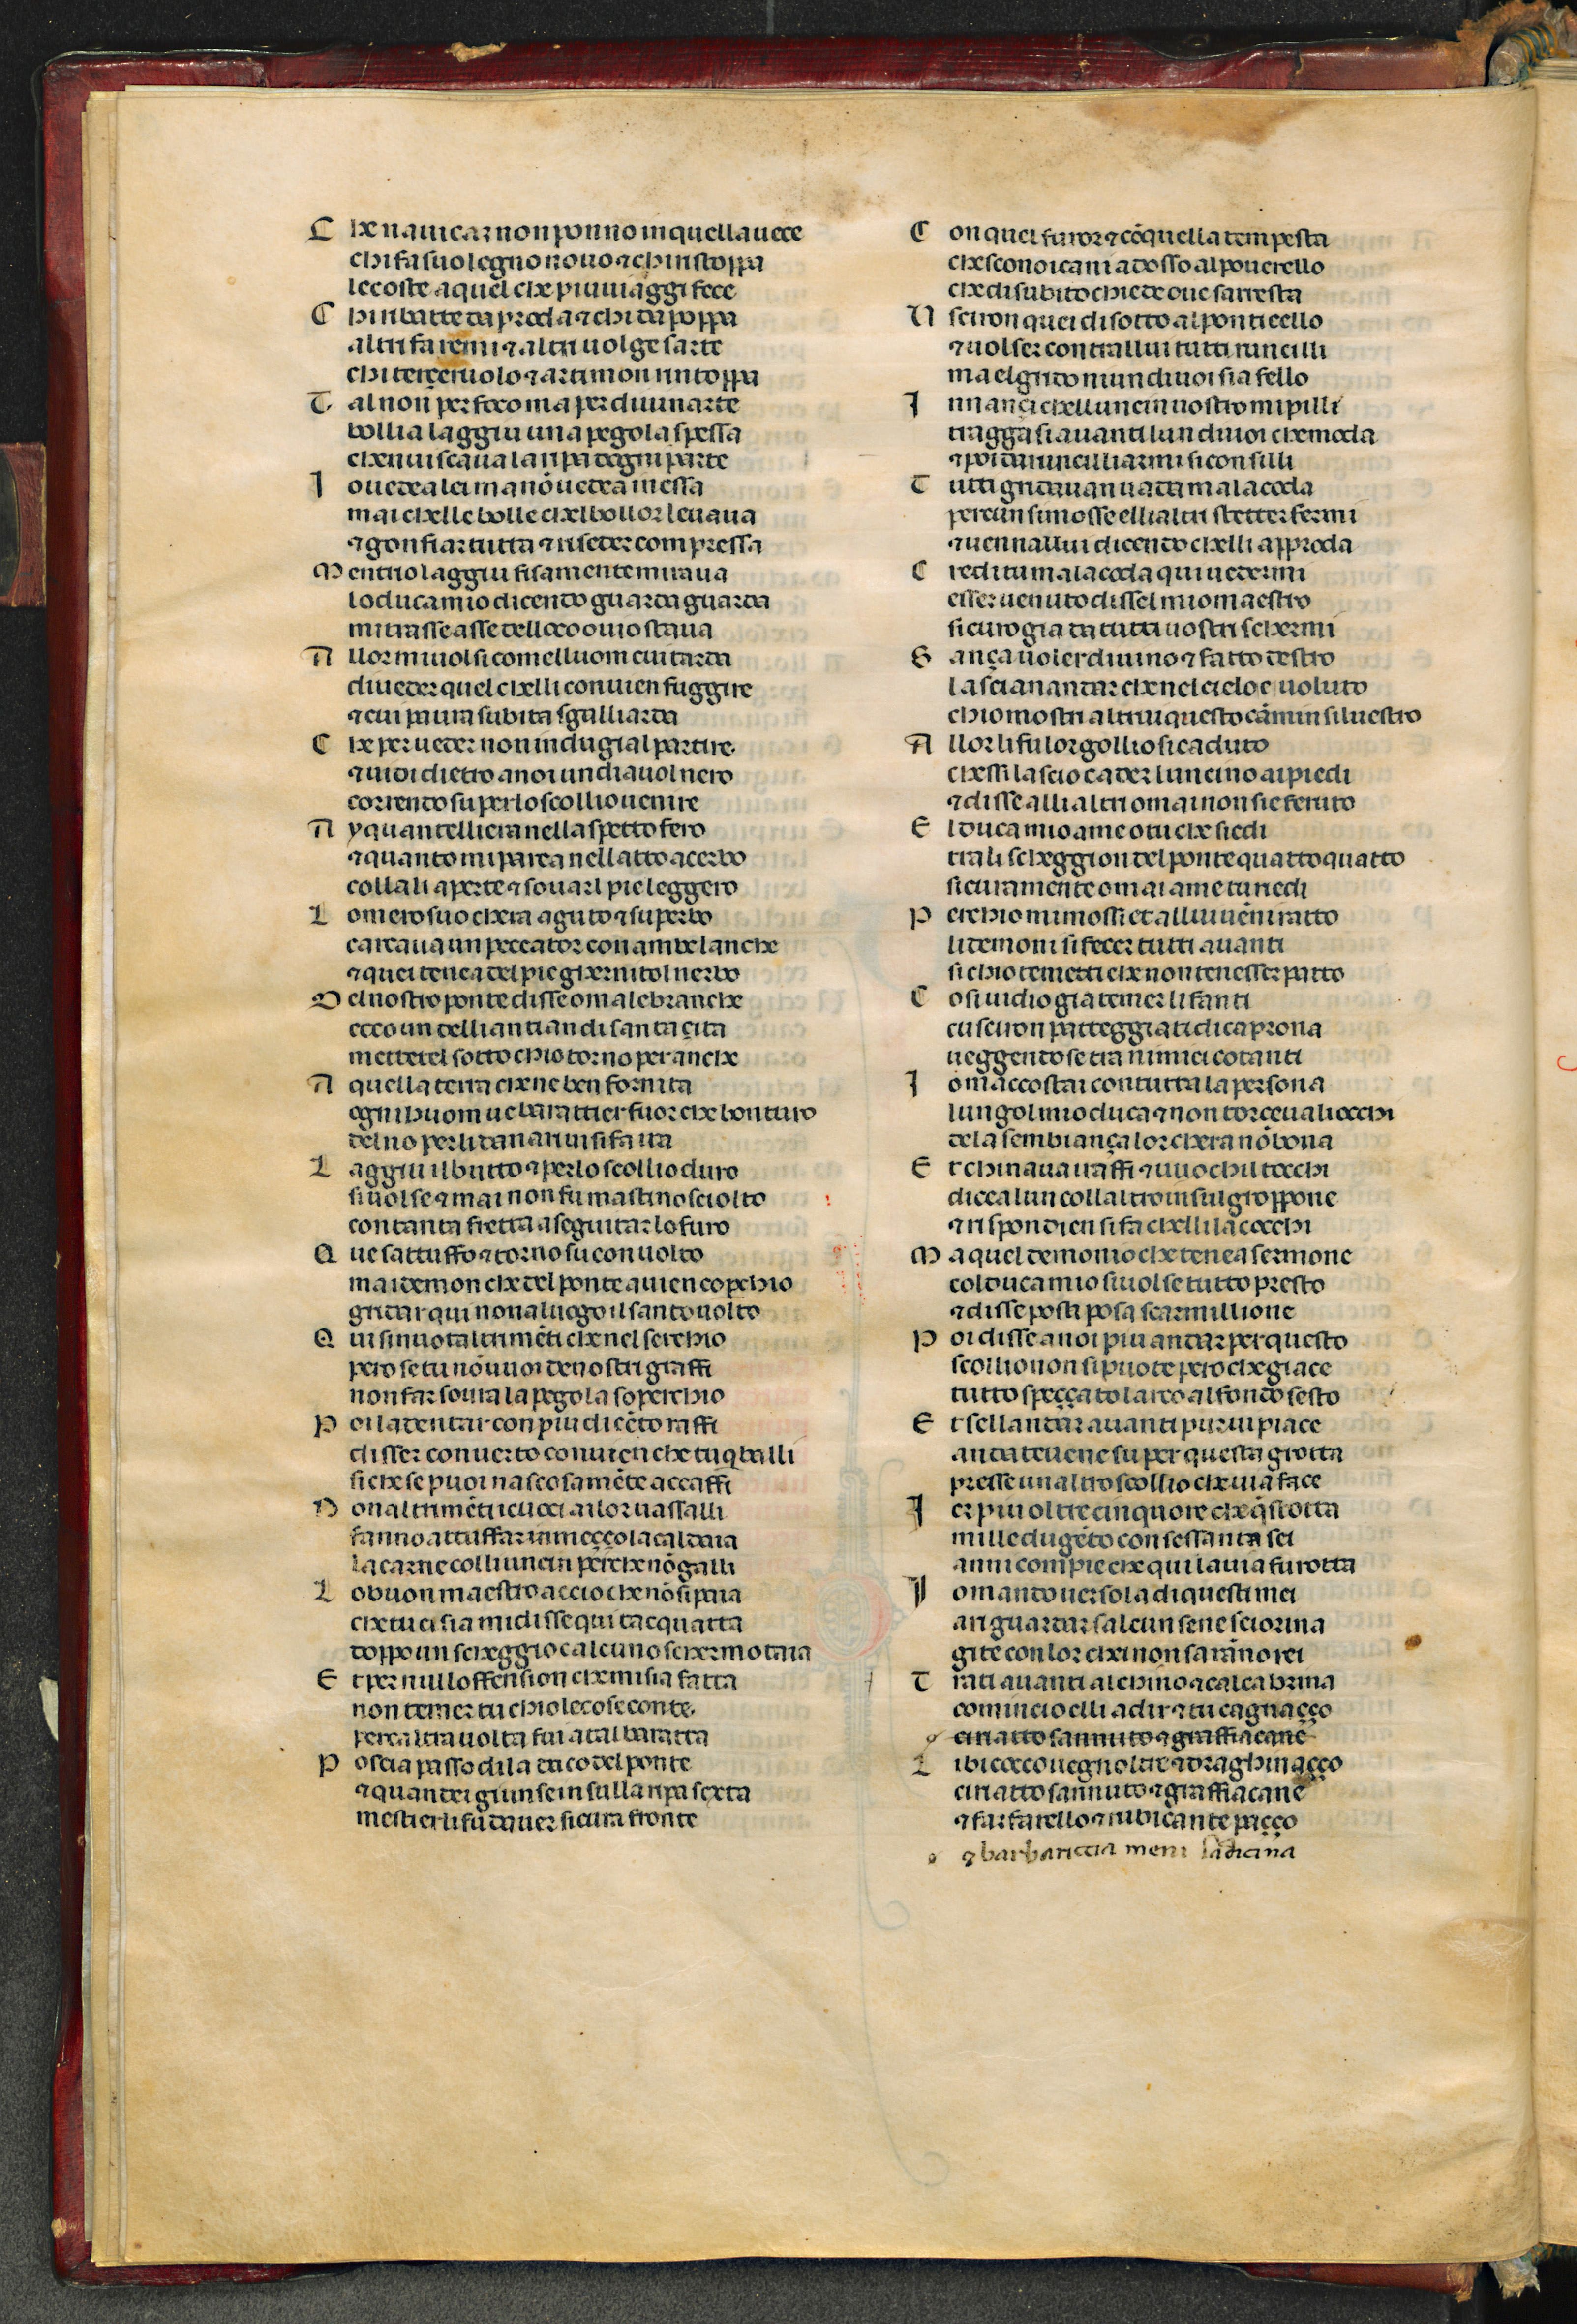 C he nauicar non ponno in quella uece
chi fa suo legno nouo ⁊ chi ristoppa
le coste a quel che piu uiaggi fece
C hi ribatte da proda ⁊ chi da poppa
altri fa remi ⁊ altri uolge sarte
chi terçeruolo ⁊ artimon rintoppa
T al non per foco ma per diuin arte
bollia laggiu una pegola spessa
chenuiscaua la ripa dogni parte
I o uedea lei ma nō uedea in essa
mai chelle bolle chel bollor leuaua
⁊ gonfiar tutta ⁊ riseder compressa
M entrio laggiu fisamente miraua
lo duca mio dicendo guarda guarda
mi trasse a se dello loco ouio staua
A llor mi uolsi come lluom cui tarda
di ueder quel chelli conuien fuggire
⁊ cui paura subita sgalliarda
C he per ueder non indugial partire
⁊ uidi dietro a noi un diauol nero
correndo su per lo scollio uenire
A y quantelliera nellaspetto fero
⁊ quanto mi parea nellatto acerbo
collali aperte ⁊ soura il pie leggero
L omero suo chera aguto ⁊ superbo
carcaua un peccator con ambe lanche
⁊ quei tenea del pie ghermitol nerbo
D el nostro ponte disse o malebranche
ecco un delli antian di santa çita
mettetel sotto chio torno per anche
A quella terra che ne ben fornita
ogni huom ue barattier fuor che bonturo
del no per li danari ui si fa ita
L aggiu il butto ⁊ per lo scollio duro
si uolse ⁊ mai non fu mastino sciolto
con tanta fretta a seguitar lo furo
Q ue sattuffo ⁊ torno su conuolto
ma i demon che del ponte auien copchio
gridar qui non a luogo il santo uolto
Q ui si nuota altrimēti che nel serchio
pero se tu nō uuoi de nostri graffi
non far soura la pegola soperchio
P oi ladentar con piu di cēto raffi
disser conuerto conuien che tu q balli
si che se puoi nascosamēte accaffi
N on altrimēti i cuoci ai lor uassalli
fanno attuffar in meççola caldaia
la carne colli uncin perche nō galli
L o buon maestro accio che nō si paia
che tu ci sia mi disse qui tacquatta
doppo un scheggio calcuno schermo taia
E t per nulloffension che mi sia fatta
non temer tu chio le cose conte
perca ltra uolta fui a tal baratta
P oscia passo di la da co del ponte
⁊ quandei giunse in sulla ripa sexta
mestier li fu dauer sicura fronte
C on quel furor ⁊ cō quella tempesta
che scono i cani adosso al pouerello
che di subito chiede oue sarresta
U sciron quei di sotto al ponticello
⁊ uolser contrallui tutti runcilli
ma el grido niun di uoi sia fello
I nnançi chelluncin uostro mi pilli
traggasi auanti lun di uoi che moda
⁊ poi darruncilliarmi si consilli
T utti gridauan uada malacoda
percun si mosse elli altri stetter fermi
⁊ uennallui dicendo chelli approda
C redi tu malacoda qui uedermi
esser uenuto dissel mio maestro
sicuro gia da tutti uostri schermi
S ança uoler diuino ⁊ fatto destro
lascian andar che nel cielo e uoluto
chio mostri altrui questo cāmin siluestro
A llor li fu lorgollio si caduto
chessi lascio cader luncino ai piedi
⁊ disse alli altri omai non sie feruto
E l duca mio a me o tu che siedi
tra li scheggion del ponte quatto quatto
sicuramente omai a me tu riedi
P erchio mi mossi et allui uēni ratto
li demoni si fecer tutti auanti
si chio temetti che non tenesser patto
C osi uidio gia temer li fanti
cusciron patteggiati di caprona
ueggendo se tra nimici cotanti
I o maccostai con tutta la persona
lungo lmio duca ⁊ non torceua li occhi
de la sembiança lor chera nō bona
E t chinaua i raffi ⁊ uuo chil tocchi
dicea lun collaltro in sul groppone
⁊ rispondien si fa chellila cocchi
M a quel demonio che tenea sermone
col duca mio si uolse tutto presto
⁊ disse posa posa scarmillione
P oi disse a noi piu andar per questo
scollio non si puote pero che giace
tutto speççato larco al fondo sesto
E t sellandar auanti pur ui piace
andateuene su per questa grotta
presse un altro scollio che uia face
I er piu oltre cinquore che q̄stotta
mille dugēto con sessanta sei
anni compie che qui la uia fu rotta
I o mando uerso la di questi miei
a riguardar salcun sene sciorina
gite con lor chei non sarāno rei
T rati auanti alchino ⁊ calcabrina
comincio elli a dir ⁊ tu cagnaçço
ciriatto sannuto ⁊ graffiacane
L ibicocco uegnoltre ⁊ draghinaçço
ciriatto sannuto ⁊ graffiacane
⁊ farfarello ⁊ rubicante paçço
⁊ barbariccia meni la dicina